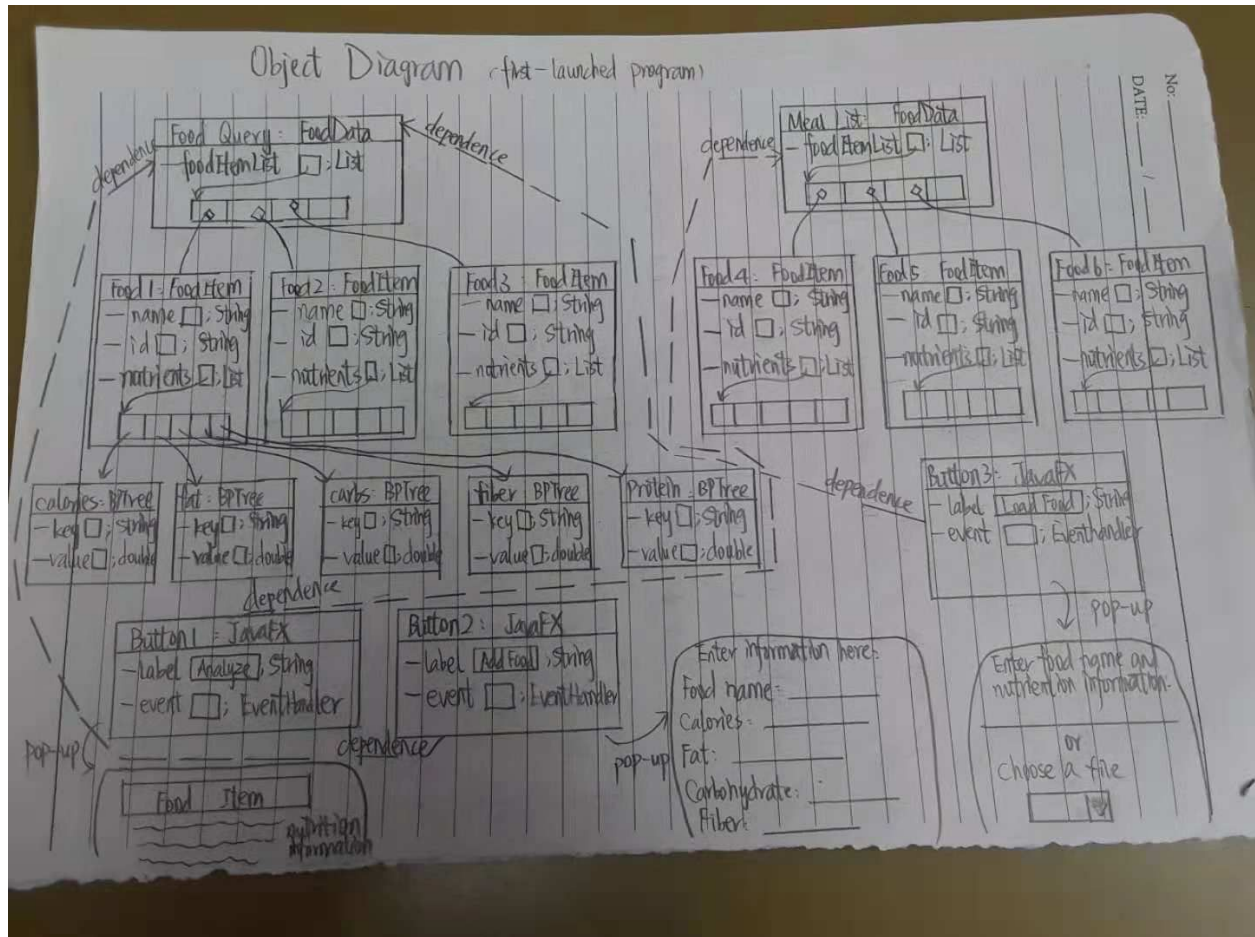 Object Diagram (first-launched program)
No:
DATE: / /
dependence
Food Query: FoodData
- foodItemList ; List
dependence
dependence
Meal List: FoodData
- foodItemList ; List
Food1: FoodItem
- name ; String
- id ; String
- nutrients ; List
Food2: FoodItem
- name : String
- id ; String
- nutrients ; List
Food3: FoodItem
- name ; String
- id ; String
- nutrients ; List
Food4: FoodItem
- name ; String
- id ; String
- nutrients ; List
Food5 FoodItem
- name ; String
- id ; String
- nutrients ; List
Food6: FoodItem
- name ; String
- id ; String
- nutrients ; List
calories: BPTree
- key ; String
- value ; double
fat: BPTree
- key ; String
- value ; double
carbs: BPTree
- key ; String
- value ; double
fiber BPTree
- key ; String
- value ; double
Protein: BPTree
- key ; String
- value ; double
dependence
Button3: JavaFX
- label Load Food ; String
- event ; Eventhandler
pop-up
dependence
Button1: JavaFX
- label Analyze ; String
- event ; EventHandler
Button2: JavaFX
- label Add Food ; String
- event ; EventHandler
dependence
pop-up
pop-up
Food Item
nutrition
information
Enter information here:
Food name:
Calories:
Fat:
Carbohydrate:
Fiber:
Enter food name and
nutriention information:
or
choose a file